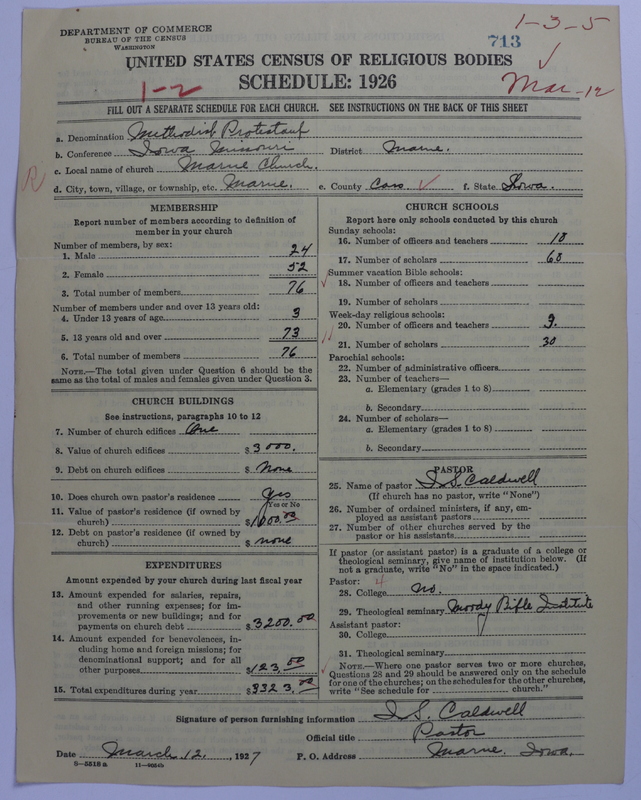 DEPARTMENT OF COMMERCE
BUREAU OF THE CENSUS
WASHINGTON
1-3-5
713
UNITED STATES CENSUS OF RELIGIOUS BODIES
SCHEDULE: 1926
1-2
Mar-12
FILL OUT A SEPARATE SCHEDULE FOR EACH CHURCH. SEE INSTRUCTIONS ON THE BACK OF THIS SHEET
a. Denomination Methodist Protestant
b. Conference Iowa Missouri District Marne.
c. Local name of church Marne Church.
R
d. City, town, village, or township, etc. Marne. e. County Cass f. State Iowa.
MEMBERSHIP
Report number of members according to definition of
member in your church
Number of members, by sex:
1. Male 24
2. Female 52
3. Total number of members 76
Number of members under and over 13 years old:
4. Under 13 years of age 3
5. 13 years old and over 73
6. Total number of members 76
NOTE.—The total given under Question 6 should be
same as the total of males and females given under Question 3.
CHURCH BUILDINGS
See instructions, paragraphs 10 to 12
7. Number of church edifices One
8. Value of church edifices $3000.
9. Debt on church edifices $ None
10. Does church own pastor's residence Yes
Yes or No
11. Value of pastor's residence (if owned by
church) $1000.00
12. Debt on pastor's residence (if owned by
church) $ none
EXPENDITURES
Amount expended by your church during last fiscal year
13. Amount expended for salaries, repairs,
and other running expenses; for im-
provements or new buildings; and for
payments on church debt $3200.00
14. Amount expended for benevolences, in-
cluding home and foreign missions; for
denominational support; and for all
other purposes $123.00
15. Total expenditures during year $3323.00
CHURCH SCHOOLS
Report here only schools conducted by this church
Sunday schools:
16. Number of officers and teachers 10
17. Number of scholars 60
Summer vacation Bible schools:
18. Number of officers and teachers
19. Number of scholars
Week-day religious schools:
20. Number of officers and teachers 3.
21. Number of scholars 30
Parochial schools:
22. Number of administrative officers
23. Number of teachers—
a. Elementary (grades 1 to 8)
b. Secondary
24. Number of scholars—
a. Elementary (grades 1 to 8)
b. Secondary
PASTOR
25. Name of pastor I. S. Caldwell
(If church has no pastor, write "None")
26. Number of ordained ministers, if any, em-
ployed as assistant pastors
27. Number of other churches served by the
pastor or his assistants
If pastor (or assistant pastor) is a graduate of a college or
theological seminary, give name of institution below. (If
not a graduate, write "No" in the space indicated.)
Pastor: 4
28. College no.
29. Theological seminary Moody Bible Institute
Assistant pastor:
30. College
31. Theological seminary
NOTE.—Where one pastor serves two or more churches,
Questions 28 and 29 should be answered only on the schedule
for one of the churches; on the schedules for the other churches,
write "See schedule for church."
Signature of person furnishing information I. S. Caldwell
Official title Pastor
Date March 12, 1927 P. O. Address Marne. Iowa.
S—5518 a